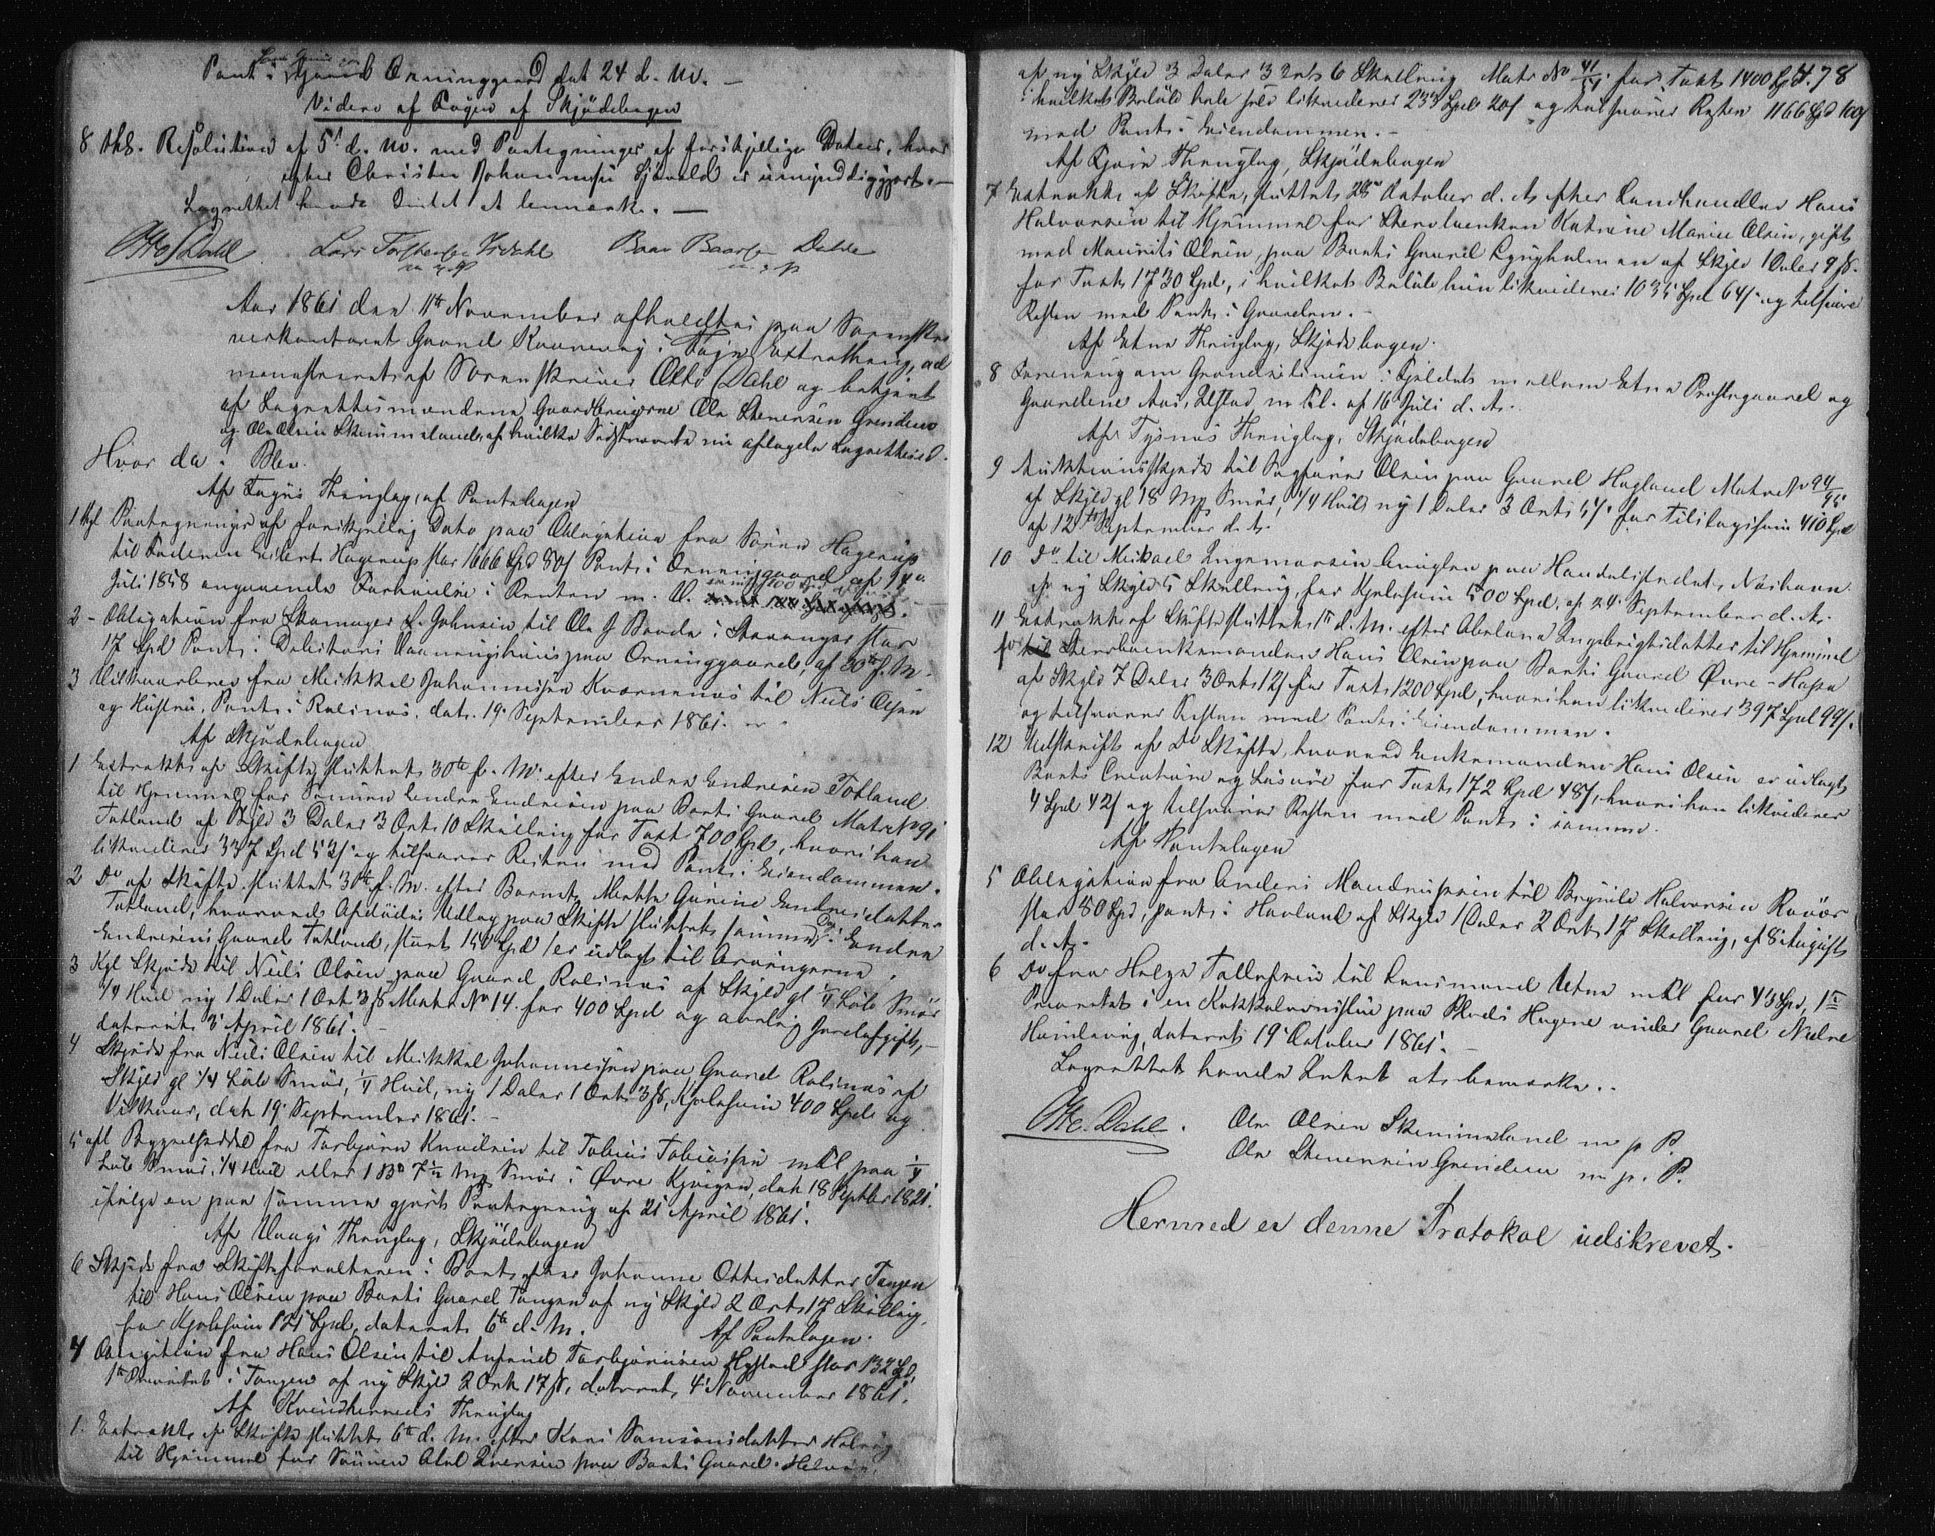 Pant i Gaard Ørninggaard dat 24 d. M. —
Videre af Fogen af Skjödebogen
8 thl. Resolution af 5t d. M. med Paategninger af forskjellige Datoer, hvor
efter Christen Johannesen er umyndiggjort. —
Lagrettet havde Intet at bemærke. —
Otto Dahl Lars Torstensen Baar Baarsen Dahle
m. p. m. p.
Aar 1861 den 11te November afholdtes paa Sorenskri
verkontoret Gaard i Extrathing, ad
ministreret af Sorenskriver Otto Dahl og betjent
af Lagrettesmændene Gaardbrugerne Ole Stenersen Grindem
og Ole Olsen Skimmeland, af hvilke Sidstnævnte nu aflagde Lagrettesed.
Hvor da: Blev
Af Thinglag, af Pantebogen
1 Paategninger af forskjellig Dato paa Obligation fra Sören Hagerup
til Faderen Eilert Hagerup stor 1666 Spd 80s Pant i Ørninggaard af 9de
Juli 1858 angaaende Forhöielse i Renten m. v.
2 - Obligation fra Skomager L. Johnsen til Ole G Bovde i Stavanger stor
17 Spd Pant i Debitors Vaaningshuus paa Ørninggaard, af 30te f. M.
3 Vilkaarbrev fra Mikkel Johannesen Kvernenes til Niels Olsen
og Hustru, Pant i Rolsnes, dat. 19 September 1861.
Af Skjödebogen
1 Extrakt af Skifte sluttet 30te f. M. efter Endre Endresen Totland
til Hjemmel for Sönnen Endre Endresen paa Borti Gaard Matr No 91
Totland af Skyld 3 Daler 3 Ort 10 Skilling for Taxt 700 Spd, hvori han
likviderer 337 Spd 52s og tilsvarer Resten med Pant i Eiendommen.
2 Do af Skifte sluttet 30te f. M. efter Barnet Marthe Gurine Endresdatter
Totland, hvorved Afdödes Udlæg paa Skifte sluttet samme Dag i Endre
Endresens Gaard Totland, stort 150 Spd er udlagt til Arvingerne.
3 Kgl Skjöde til Niels Olsen paa Gaard Rolsnes af Skyld gl ¼ Löb Smör
¼ Hud ny 1 Daler 1 Ort 3 s Matr No 14 for 400 Spd og aarlig Jordafgift,
dateret 3 April 1861. —
4 Skjöde fra Niels Olsen til Mikkel Johannesen paa Gaard Rolsnes af
Skyld gl ¼ Löb Smör, ¼ Hud, ny 1 Daler 1 Ort 3 s, Kjöbesum 400 Spd og
Vilkaar, dat 19 September 1861. —
5 afl Bygselseddel fra Torbjörn Knudsen til Tobias Tobiassen mfl paa ¼
Löb Smör, ¼ Hud eller 1 Bs 7½ Mg Smör i Øvre , dat 18 Septbr 1821.
ifölge en paa samme gjort Paategning af 21 April 1861.
Af Vaags Thinglag, Skjödebogen
6 Skjöde fra Skifteforvalteren i Boet efter Johanne Ottesdatter Tangen
til Hans Olsen paa Borti Gaard Tangen af ny Skyld 2 Ort 17 Skilling,
for Kjöbesum 121 Spd, dateret 6te d. M. Af Pantebogen.
4 Obligation fra Hans Olsen til Torbjörnsen Hystad stor 132 Spd,
1te Prioritet i Tangen af ny Skyld 2 Ort 17 s, dateret 4 November 1861.
Af Kvindherreds Thinglag
1. Extrakt af Skifte sluttet 6te d. M. efter Kari Samsonsdatter
til Hjemmel for Sönnen Iversen paa Borti Gaard
af ny Skyld 3 Daler 3 Ort 6 Skilling Matr No 41 for Taxt 1400 Spd 78
i hvilket Belöb hele likviderer 233 Spd 20s og tilsvarer Resten 1166 Spd 100s
med Pant i Eiendommen. —
Af Thinglag, Skjödebogen
7 Extrakt af Skifte, sluttet 28de October d. A. efter Landhandler Hans
Halvorsen til Hjemmel for Stervboenken Katrine Marie Olsen, gift
med Maurits Olsen, paa Borti Gaard Lynghelmen af Skyld 1 Daler 9 s.
for Taxt 1730 Spd, i hvilket Belöb hun likviderer 1035 Spd 64s og tilsvarer
Resten med Pant i Gaarden. —
Af Etne Thinglag, Skjödebogen.
8 Forening om Grændselinien i Fjeldet mellem Etne Præstegaard og
Gaardene Aas, m fl. af 16 Juli d. A. —
Af Tysnes Thinglag, Skjödebogen
9 Auktionsskjöde til Sagförer Olsen paa Gaard Hagland Matr No 94/95
af Skyld gl 18 Mg Smör, ¼ Hud ny 1 Daler 3 Ort s for Tilslagssum 410 Spd
af 12te September d. A.
10 Do til Mikael Ingemarsen paa Handelsstedet Nörhavn
af ny Skyld 5 Skilling, for Kjöbesum 500 Spd, af 24 September d. A.
11 Extrakt af Skifte sluttet 1te d. M. efter Abelone Ingebrigtsdatter til Hjemmel
for Stervboenkemanden Hans Olsen paa Borti Gaard Øvre-
af Skyld 7 Daler 3 Ort 12s for Taxt 1200 Spd, hvori han likviderer 397 Spd 99s
og tilsvarer Resten med Pant i Eiendommen.
12 Udskrift af Do Skifte, hvorved Enkemanden Hans Olsen er udlagt
Boets Creature og Lösöre for Taxt 172 Spd 48s, hvori han likviderer
4 Spd 42s og tilsvarer Resten med Pant i samme.
Af Pantebogen
5 Obligation fra Anders Mandrupsen til Brynild Halvorsen
stor 80 Spd, pant i Havland af Skyld 1 Daler 2 Ort 17 Skilling, af 8 August
d. A.
6 Do fra Helge Tollefsen til Lensmand Etne mfl for 43 Spd, 1te
Prioritet i en Kakkelovnsstue paa Plads Hagene under Gaard Nedre
Handevig, dateret 19 October 1861. —
Lagrettet havde Intet at bemærke. —
Otto Dahl. Ole Olsen Skimmeland m. p. P.
Ole Stenersen Grindem m. p. P.
Hermed er denne Protokol udskrevet.